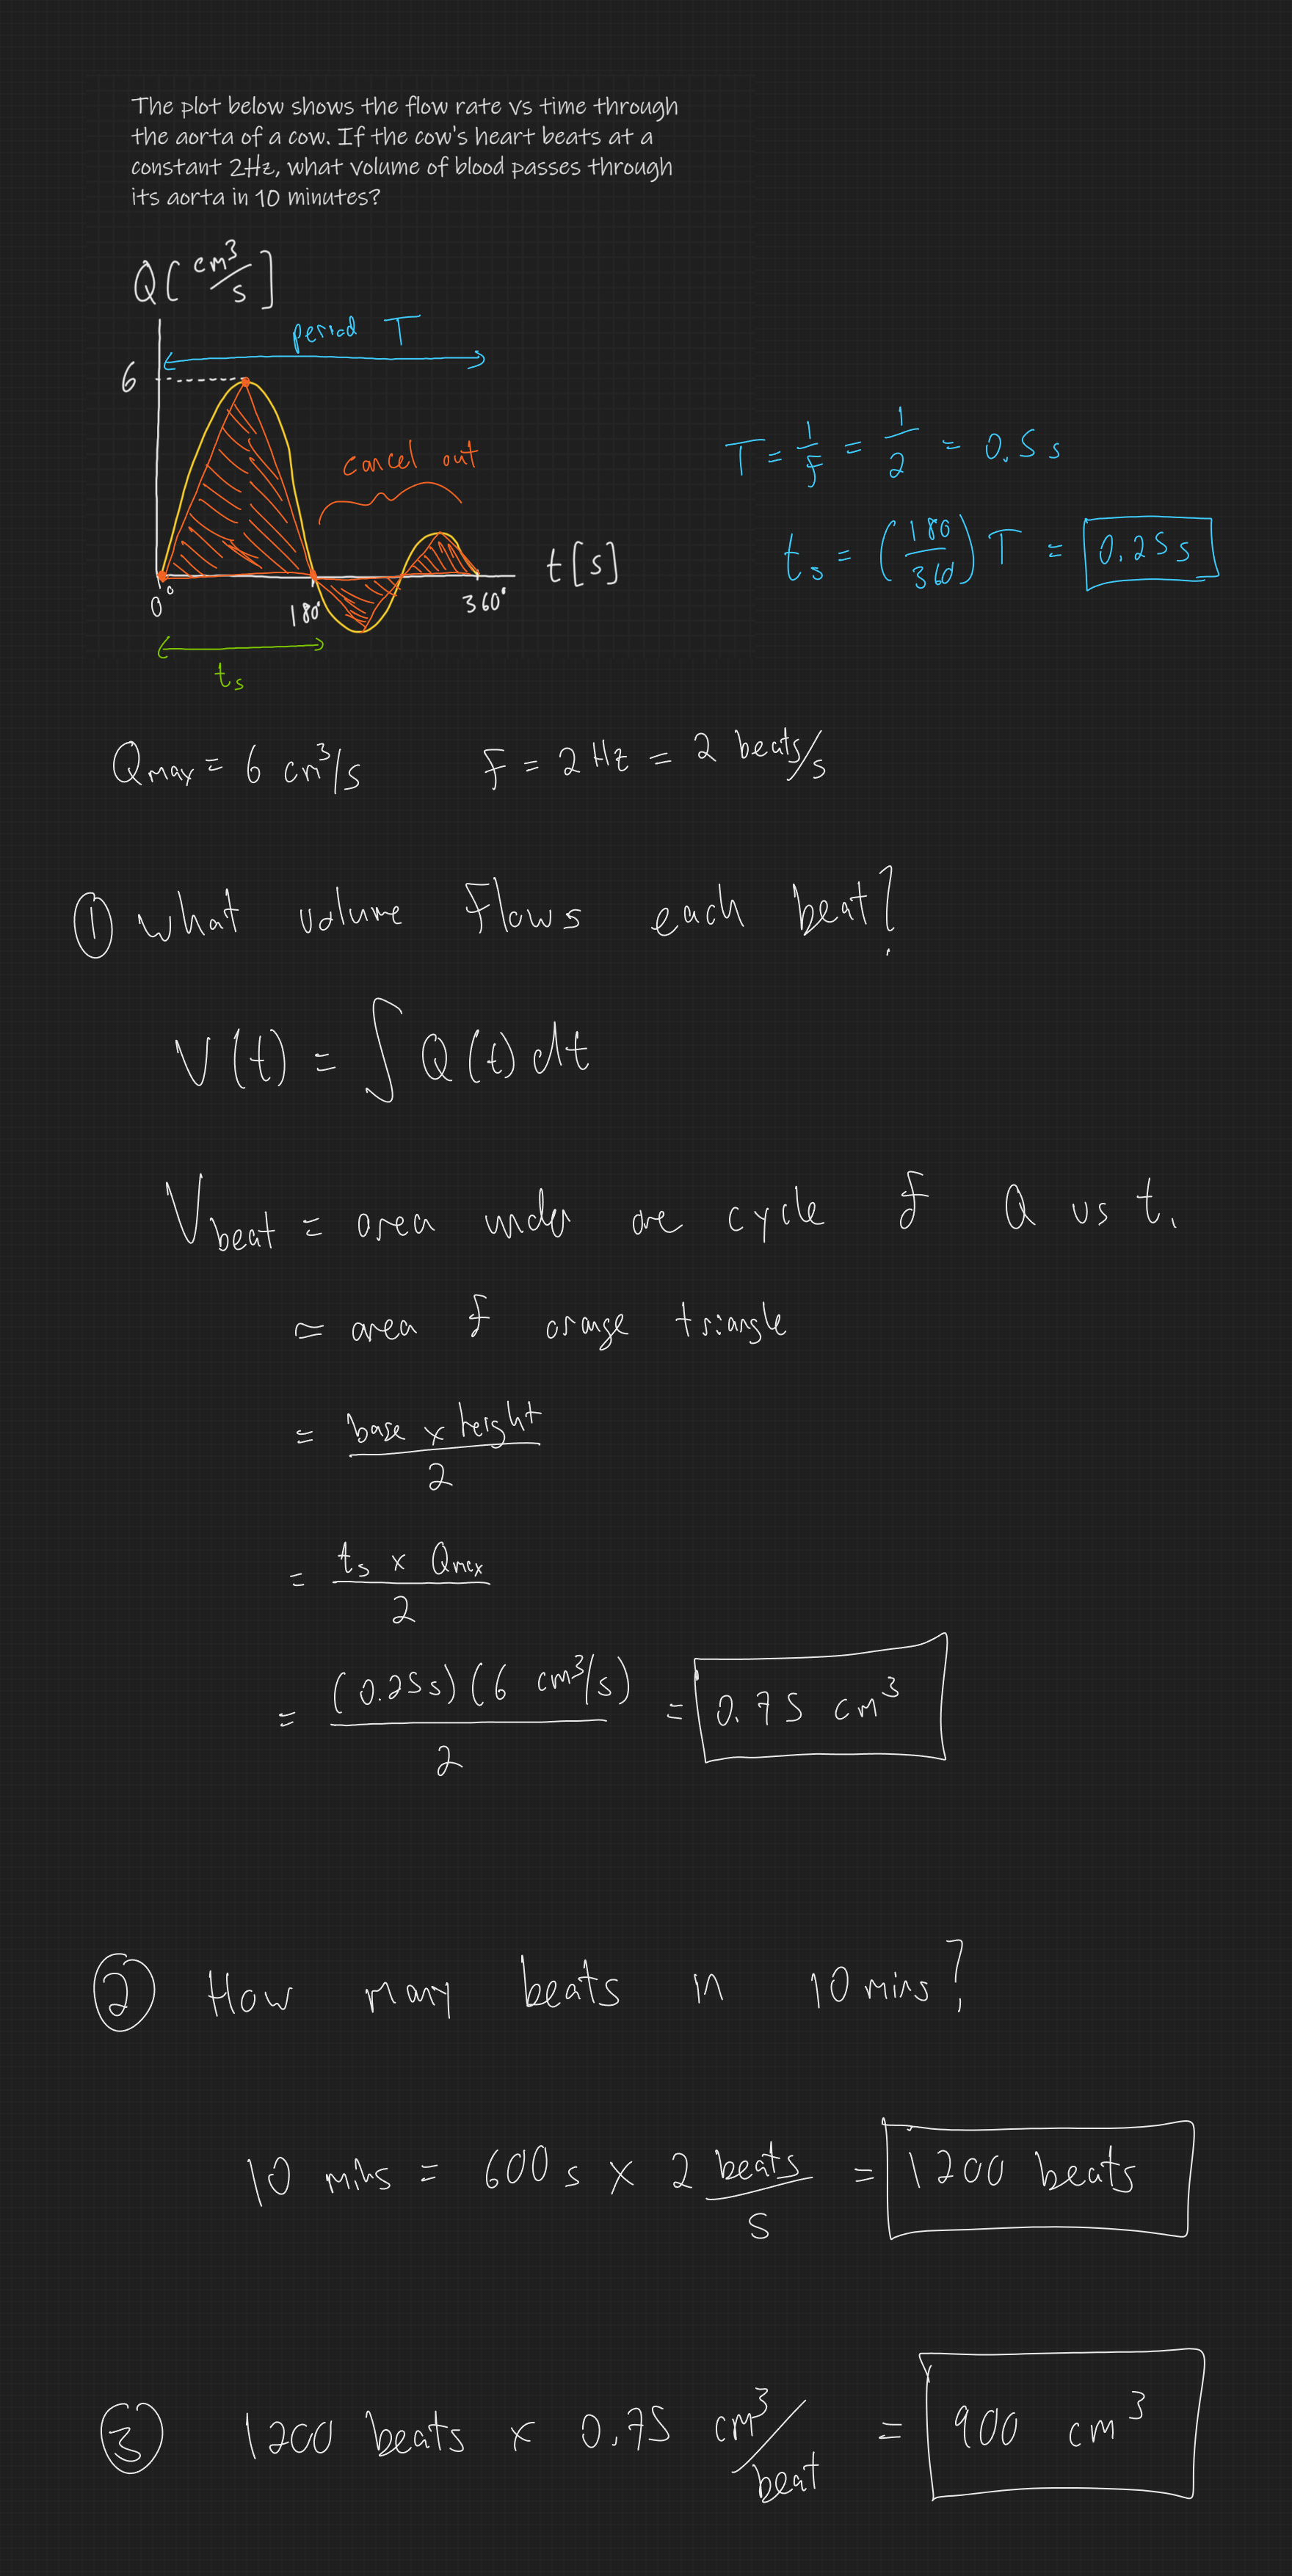 The plot below shows the flow rate vs time through
the aorta of a cow. If the cow's heart beats at a
constant 2Hz, what volume of blood passes through
its aorta in 10 minutes?
Q[cm³/s]
period T
6
cancel out
t[s]
0°
180°
360°
ts
T = 1/f = 1/2 = 0.5 s
ts = (180/360) T = 0.25 s
Qmax = 6 cm³/s
f = 2 Hz = 2 beats/s
① What volume flows each beat?
V(t) = ∫ Q(t) dt
Vbeat = area under one cycle of Q vs t.
≈ area of orange triangle
= base x height / 2
= ts x Qmax / 2
= (0.25s)(6 cm³/s) / 2 = 0.75 cm³
② How many beats in 10 mins?
10 mins = 600 s x 2 beats/s = 1200 beats
③ 1200 beats x 0.75 cm³/beat = 900 cm³